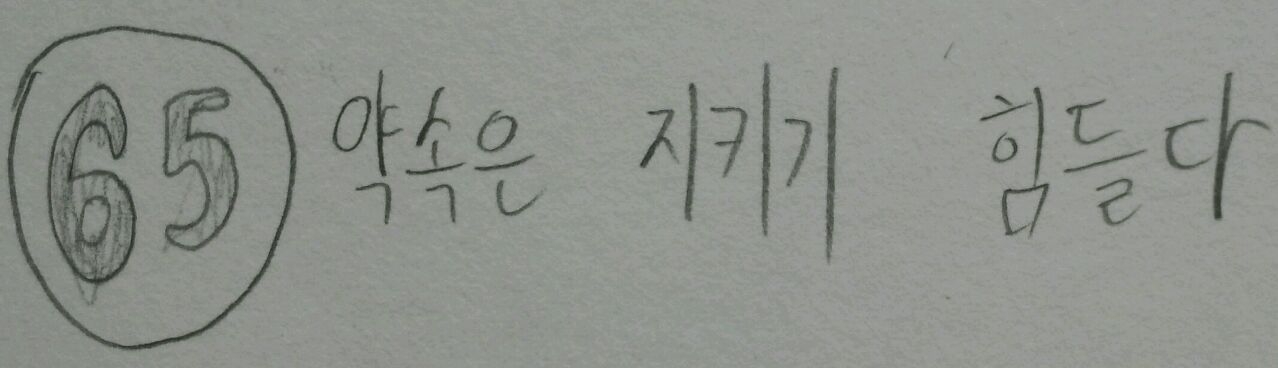 65 약속은 지키기 힘들다